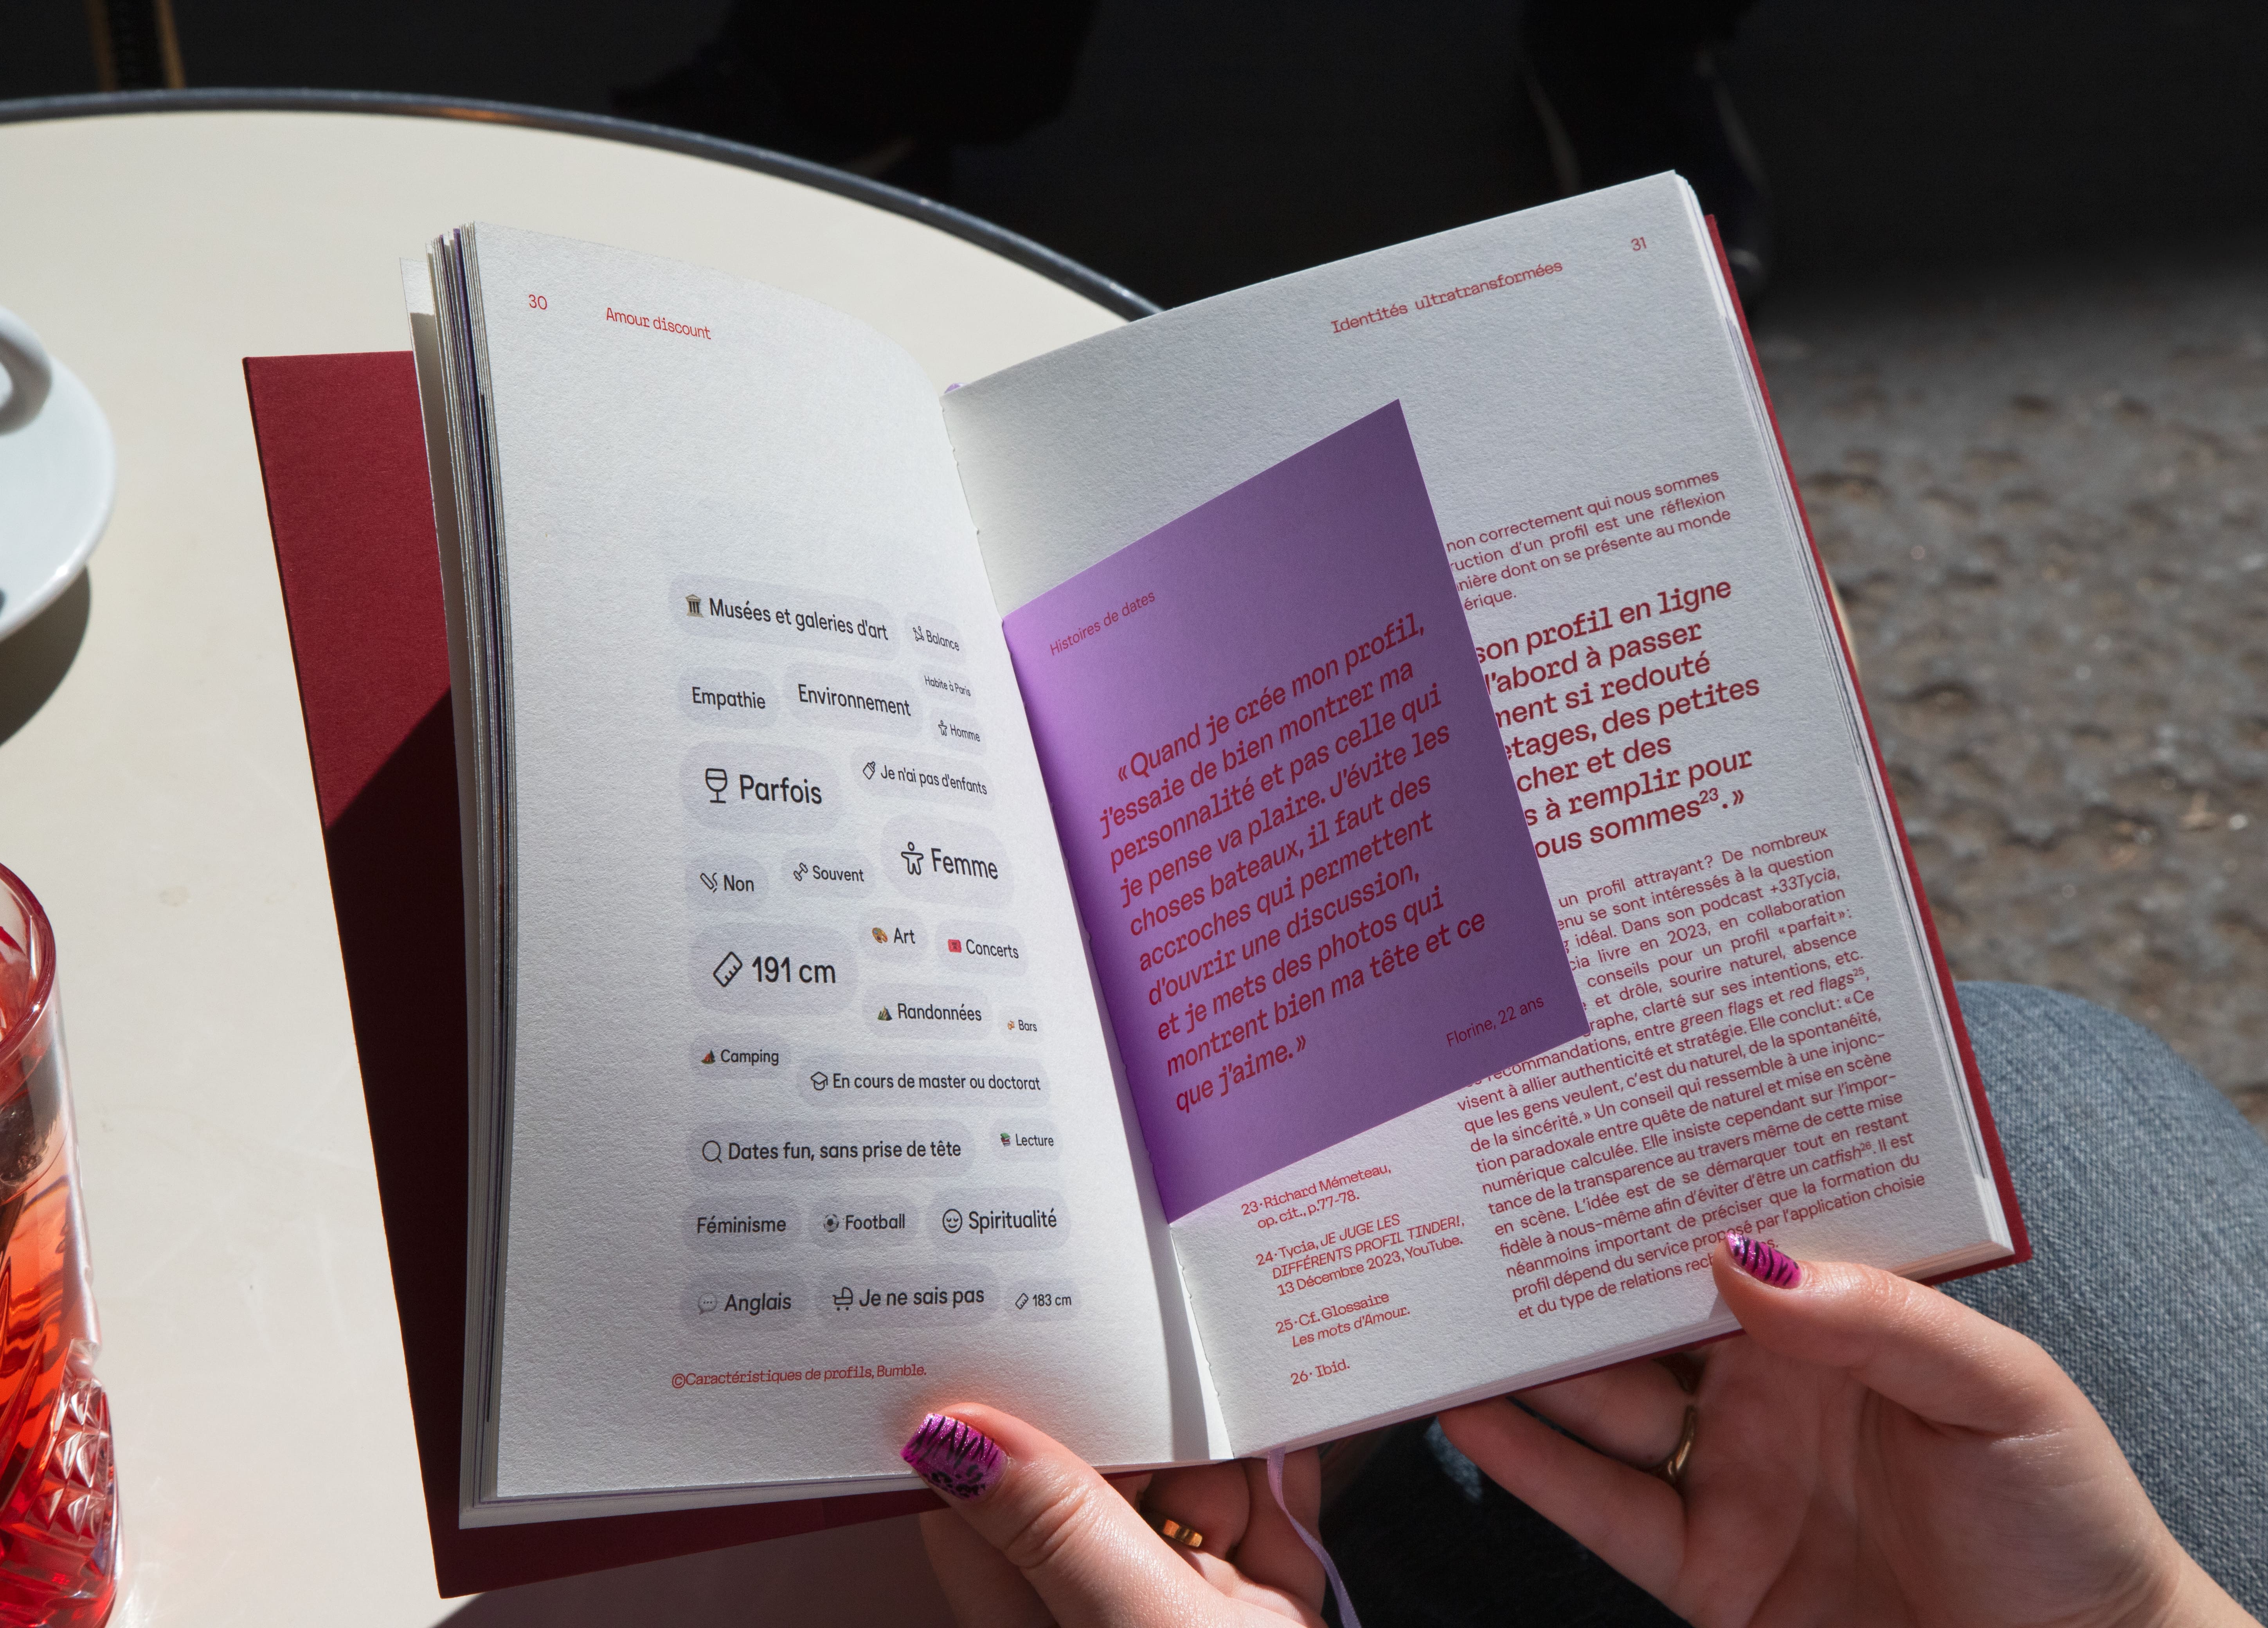 30
Amour discount
Musées et galeries d'art
Balance
Empathie
Environnement
Habite à Paris
Homme
Parfois
Je n'ai pas d'enfants
Non
Souvent
Femme
191 cm
Art
Concerts
Randonnées
Bars
Camping
En cours de master ou doctorat
Dates fun, sans prise de tête
Lecture
Féminisme
Football
Spiritualité
Anglais
Je ne sais pas
183 cm
©Caractéristiques de profils, Bumble.
Identités ultratransformées
31
Histoires de dates
«Quand je crée mon profil,
j'essaie de bien montrer ma
personnalité et pas celle qui
je pense va plaire. J'évite les
choses bateaux, il faut des
accroches qui permettent
d'ouvrir une discussion,
et je mets des photos qui
montrent bien ma tête et ce
que j'aime.»
Florine, 22 ans
non correctement qui nous sommes
ruction d'un profil est une réflexion
nière dont on se présente au monde
érique.
son profil en ligne
d'abord à passer
ment si redouté
étages, des petites
cher et des
s à remplir pour
ous sommes²³.»
un profil attrayant? De nombreux
enu se sont intéressés à la question
idéal. Dans son podcast +33Tycia,
cia livre en 2023, en collaboration
conseils pour un profil «parfait»:
et drôle, sourire naturel, absence
graphe, clarté sur ses intentions, etc.
recommandations, entre green flags et red flags²⁵,
visent à allier authenticité et stratégie. Elle conclut: «Ce
que les gens veulent, c'est du naturel, de la spontanéité,
de la sincérité.» Un conseil qui ressemble à une injonc-
tion paradoxale entre quête de naturel et mise en scène
numérique calculée. Elle insiste cependant sur l'impor-
tance de la transparence au travers même de cette mise
en scène. L'idée est de se démarquer tout en restant
fidèle à nous-même afin d'éviter d'être un catfish²⁶. Il est
néanmoins important de préciser que la formation du
profil dépend du service proposé par l'application choisie
et du type de relations
23·Richard Mémeteau,
op. cit., p.77-78.
24·Tycia, JE JUGE LES
DIFFÉRENTS PROFIL TINDER!,
13 Décembre 2023, YouTube.
25·Cf. Glossaire
Les mots d'Amour.
26·Ibid.